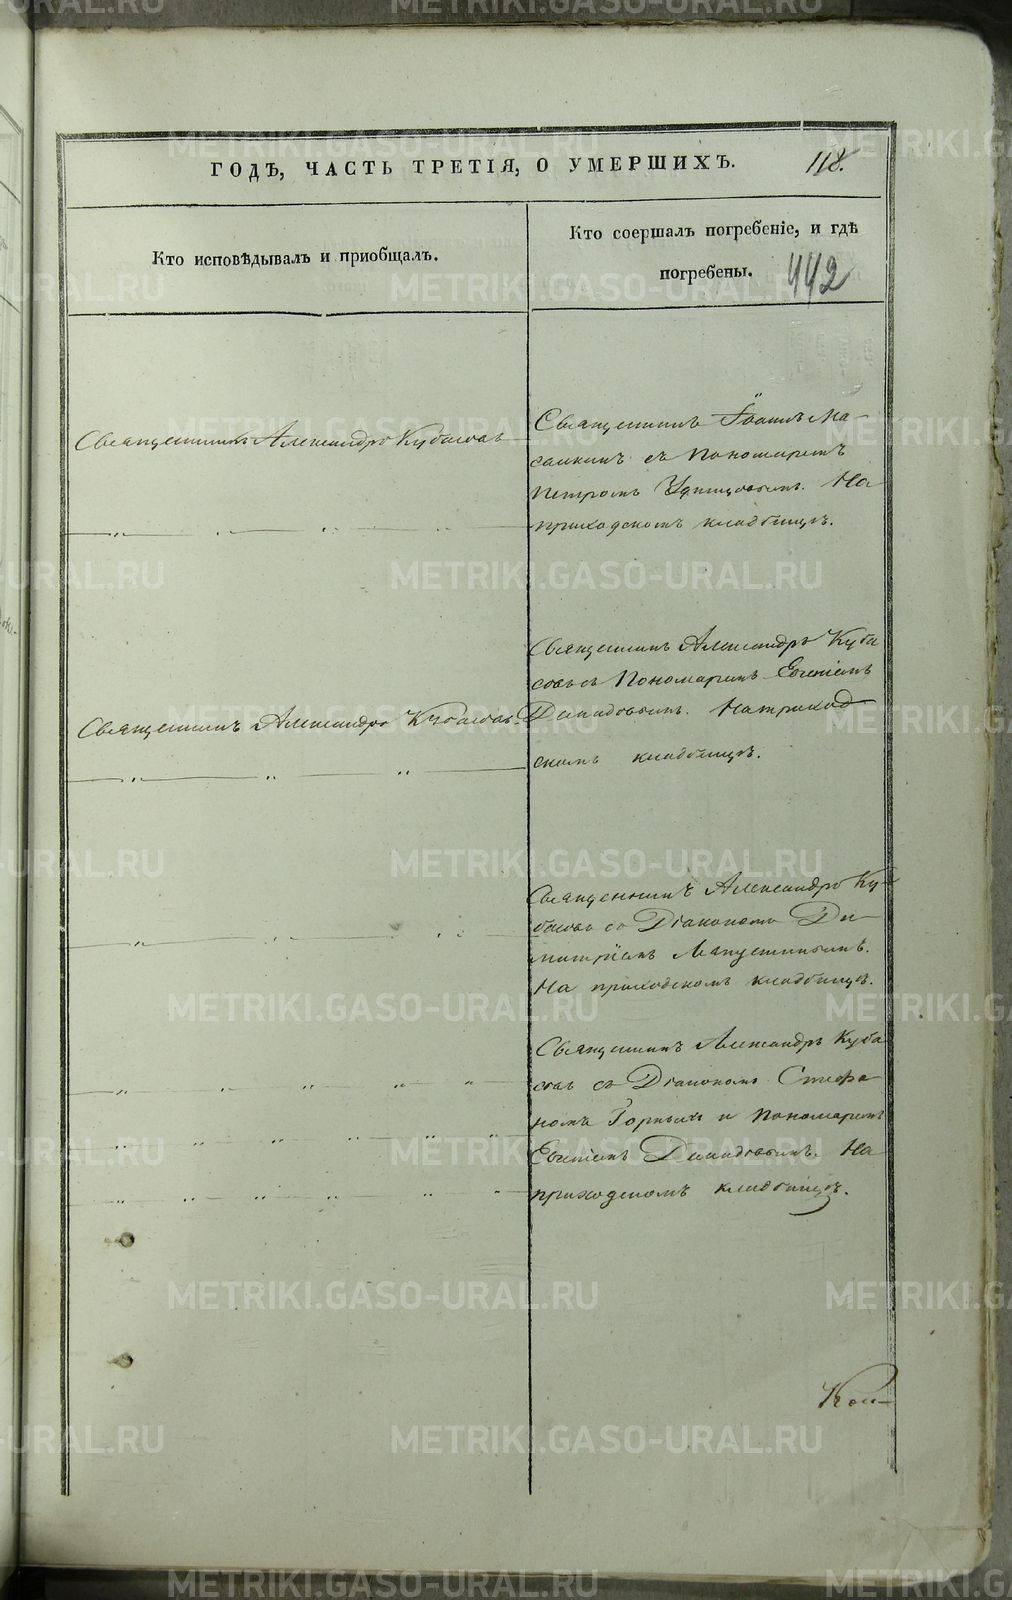 ГОДѢ, ЧАСТЬ ТРЕТІЯ, О УМЕРШИХЪ.
118.
Кто исповѣдывалъ и пріобщалъ.
Кто соершалъ погребеніе, и гдѣ
погребены.
442
Священникъ Александръ Кубасовъ
Священникъ Іоаннъ Ма-
саникъ съ Пономаремъ
Петромъ Удинцовымъ. На
приходскомъ кладбищѣ.
Священникъ Александръ Кубасовъ
Священникъ Александръ Куба
совъ съ Пономаремъ Евгеніемъ
Демидовымъ. На приход
скомъ кладбищѣ.
Священникъ Александръ Ку-
басовъ съ Діакономъ Ди-
митріемъ
На приходскомъ кладбищѣ.
Священникъ Александръ Куба
совъ съ Діакономъ Стефа
номъ Горныхъ и Пономаремъ
Евгеніемъ Демидовымъ. На
приходскомъ кладбищѣ.
METRIKI.GASO-URAL.RU